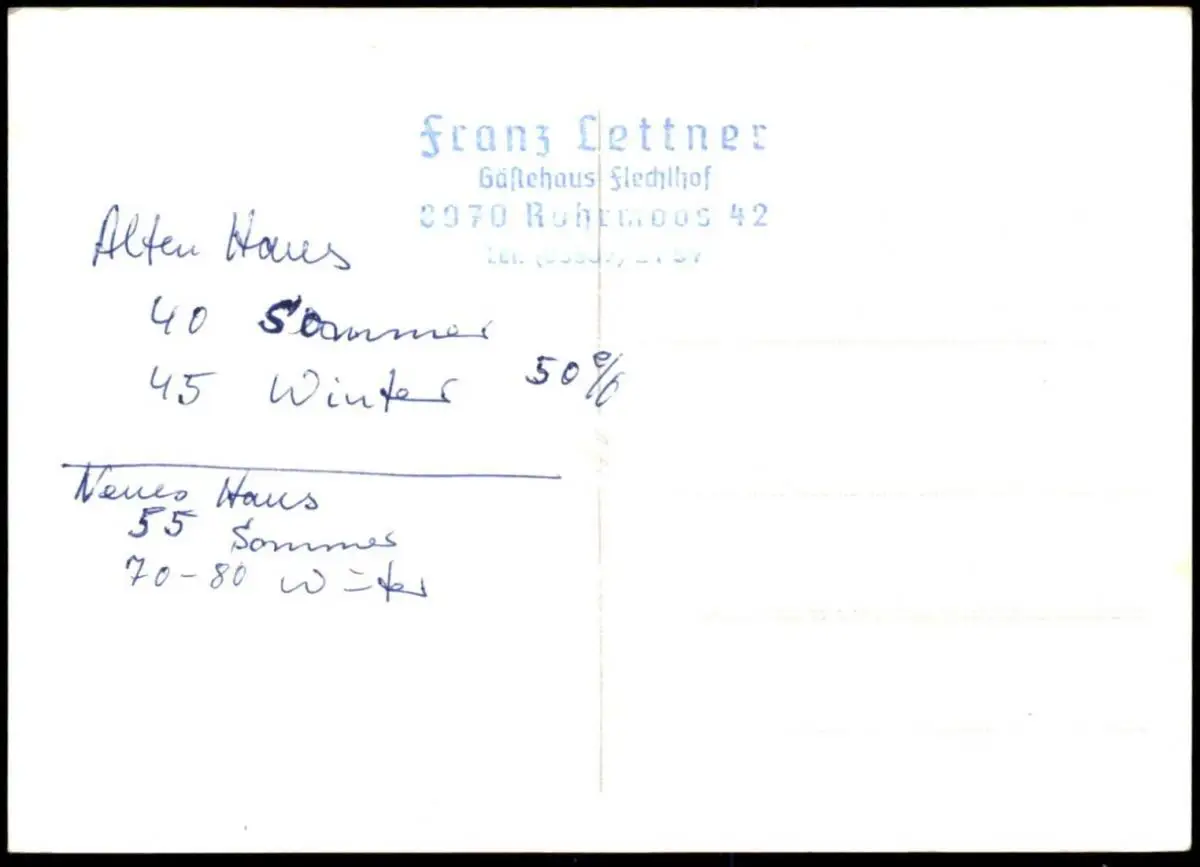 Franz Lettner
Gästehaus Flechlhof
8970 Rohrmoos 42
Alten Haus
40 Sommer
45 Winter 50%
Neues Haus
55 Sommer
70-80 Winter